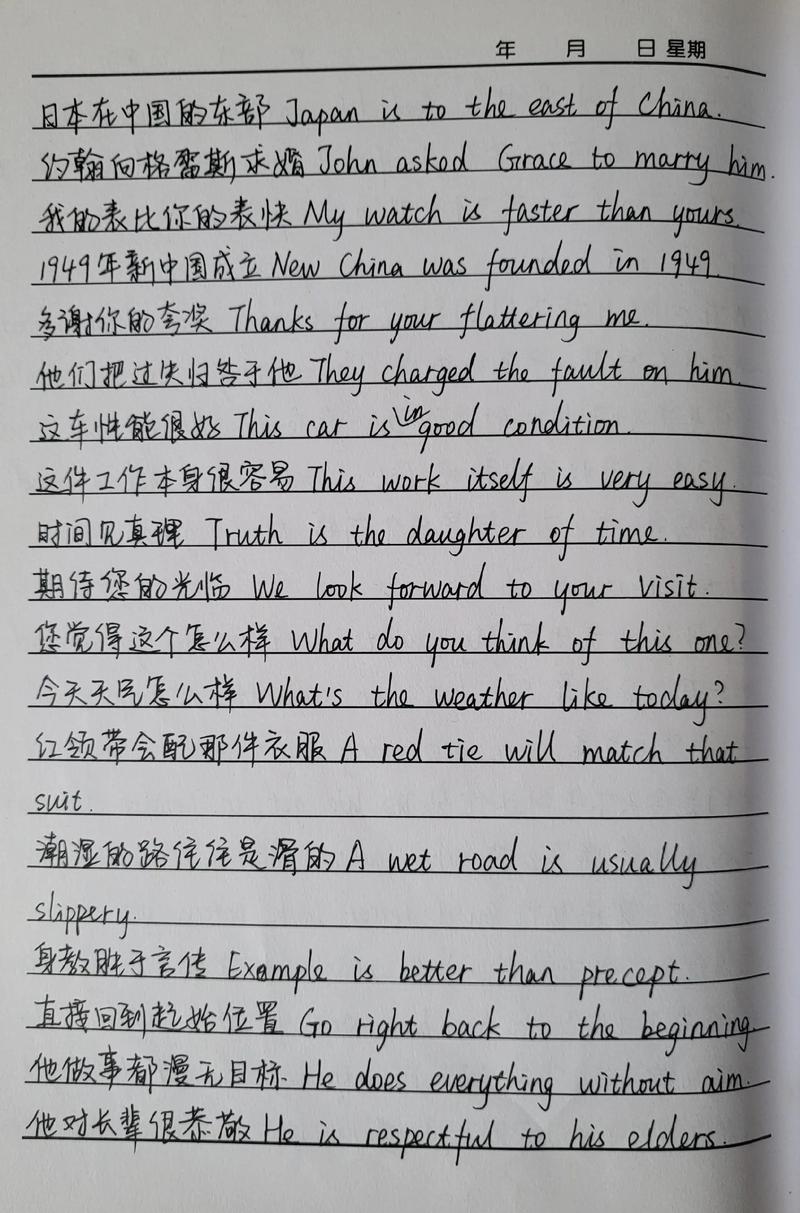 年 月 日 星期
日本在中国的东部 Japan is to the east of China.
约翰向格蕾斯求婚 John asked Grace to marry him.
我的表比你的表快 My watch is faster than yours.
1949年新中国成立 New China was founded in 1949.
多谢你的夸奖 Thanks for your flattering me.
他们把过失归咎于他 They charged the fault on him.
这车性能很好 This car is in good condition.
这件工作本身很容易 This work itself is very easy.
时间见真理 Truth is the daughter of time.
期待您的光临 We look forward to your visit.
您觉得这个怎么样 What do you think of this one?
今天天气怎么样 What's the weather like today?
红领带会配那件衣服 A red tie will match that
suit.
潮湿的路往往是滑的 A wet road is usually
slippery.
身教胜于言传 Example is better than precept.
直接回到起始位置 Go right back to the beginning.
他做事都漫无目标. He does everything without aim.
他对长辈很恭敬 He is respectful to his elders.